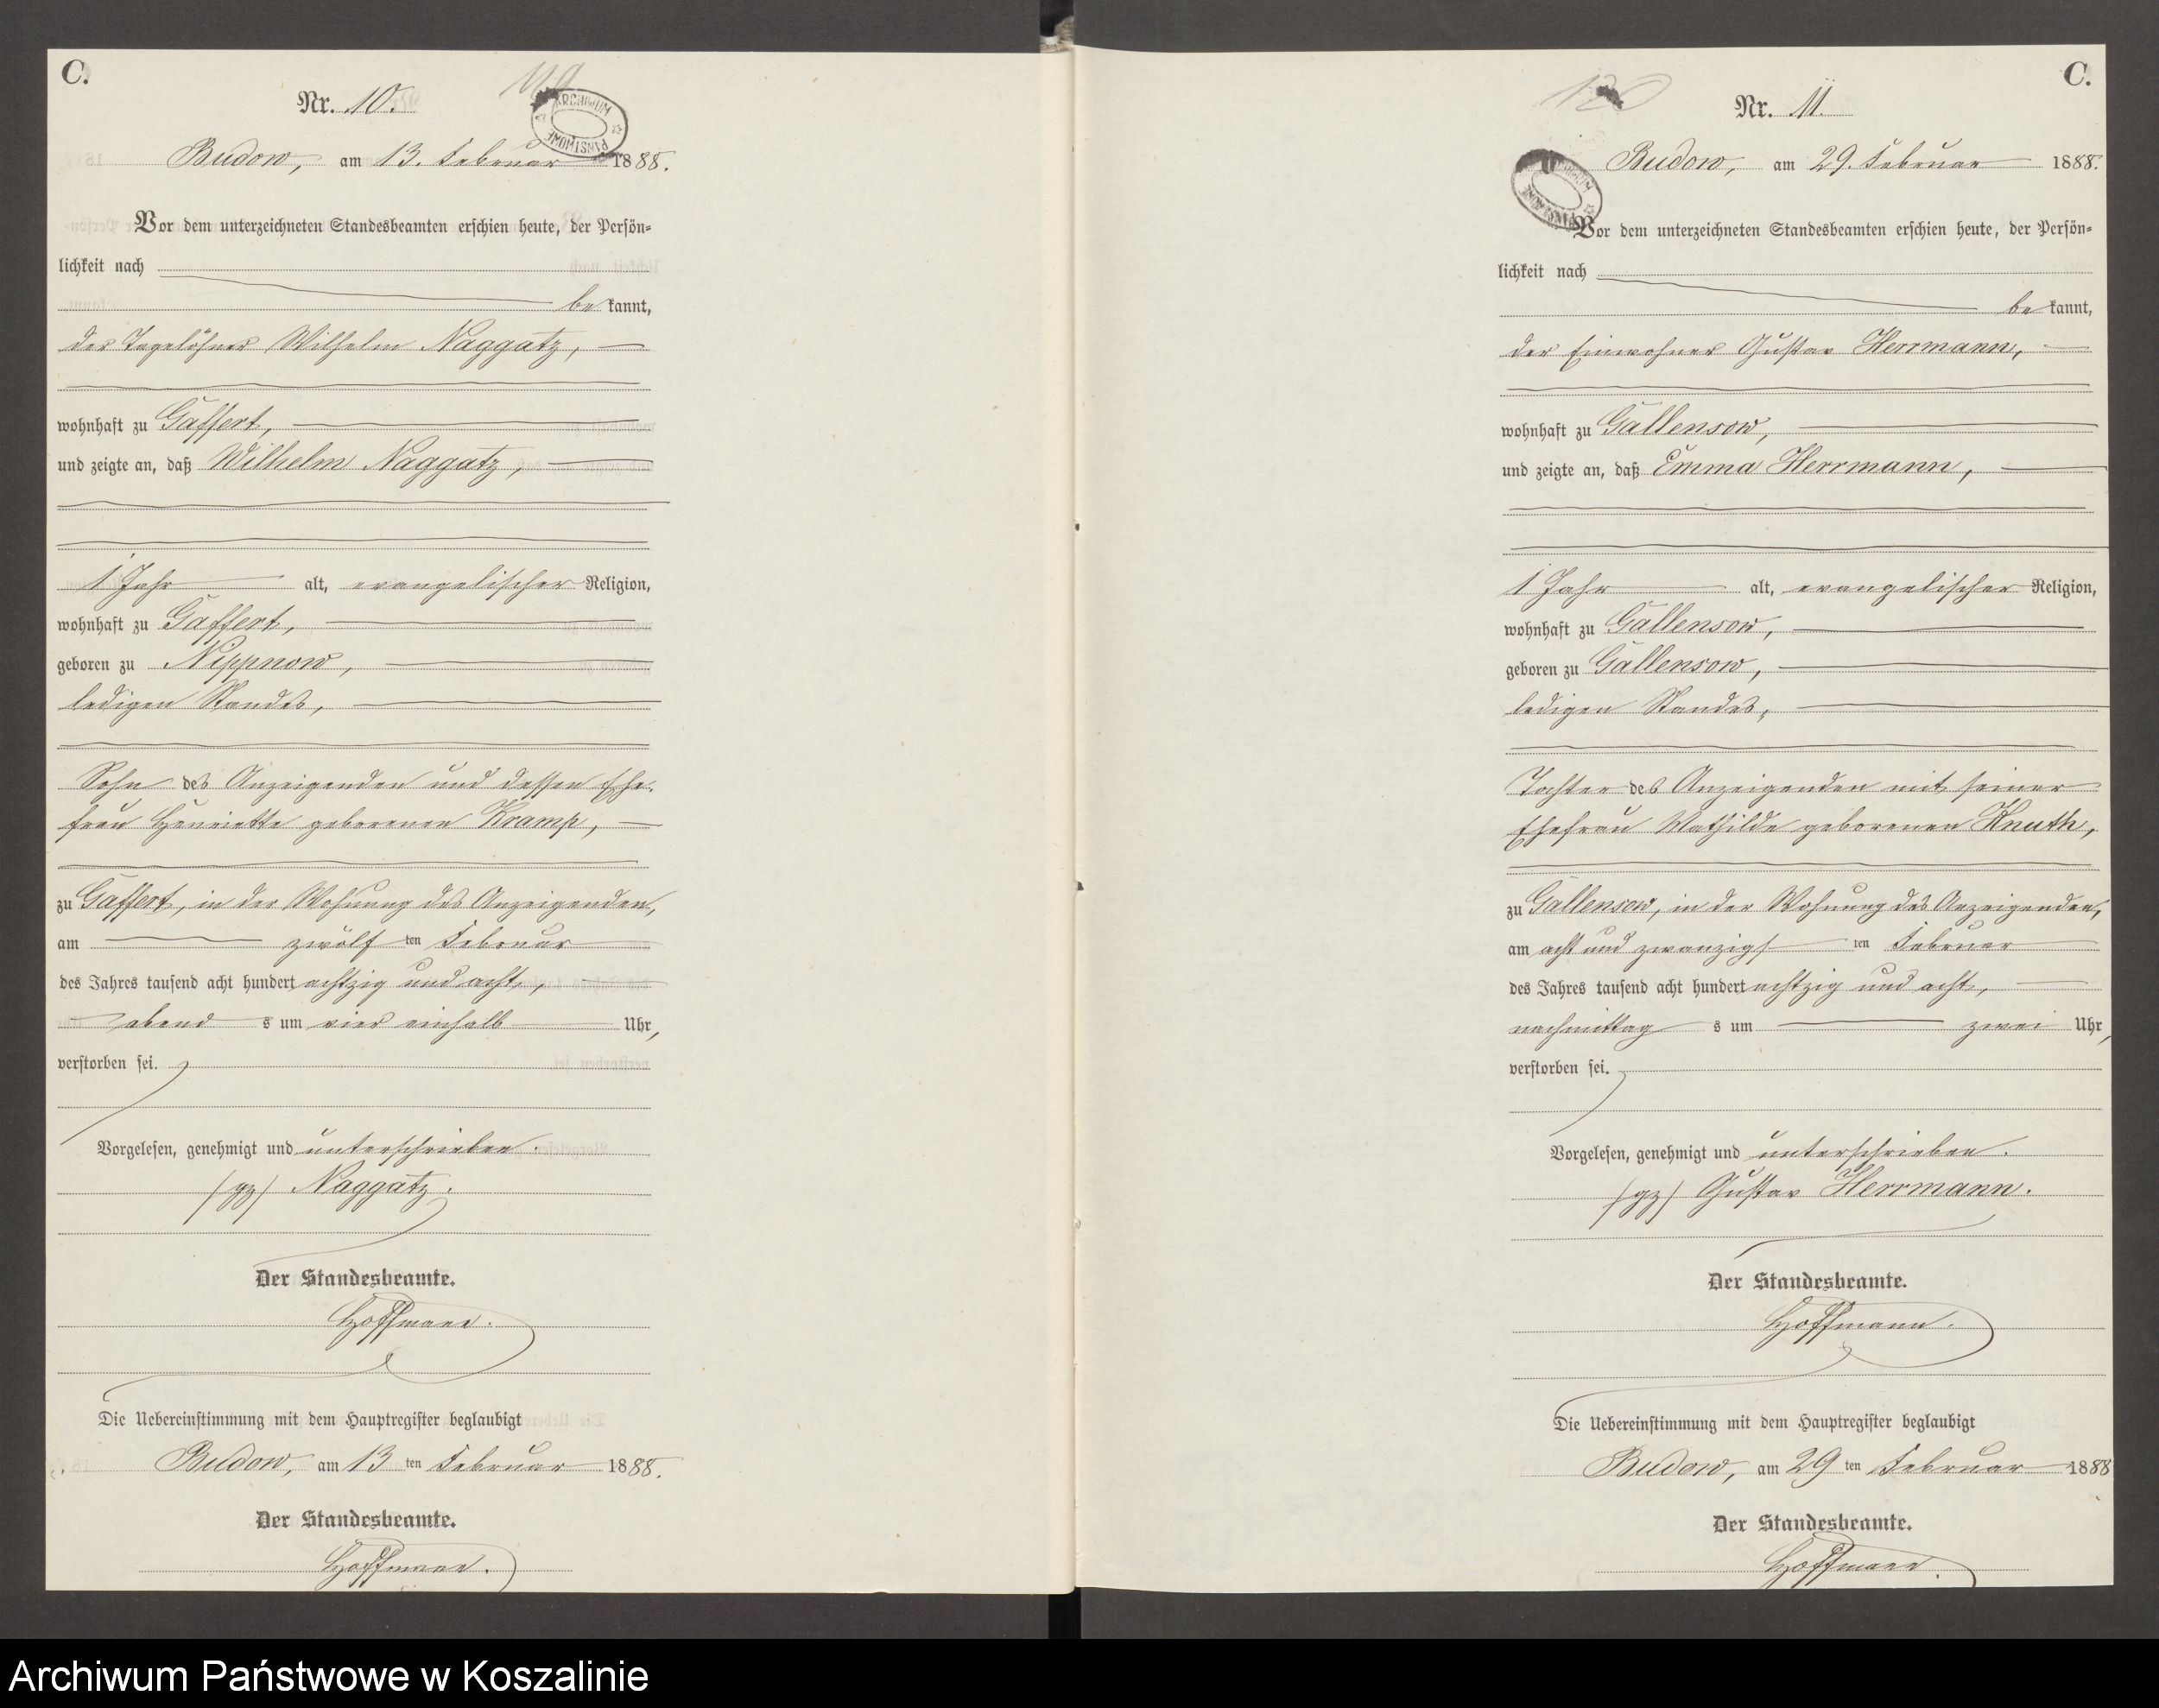 C.
119
Nr. 10.
ARCHIWUM PAŃSTWOWE
Budow, am 13. Februar 1888.
Vor dem unterzeichneten Standesbeamten erschien heute, der Persön-
lichkeit nach
be kannt,
der Tagelöhner Wilhelm Naggatz,
wohnhaft zu Gaffert,
und zeigte an, daß Wilhelm Naggatz,
1 Jahr alt, evangelischer Religion,
wohnhaft zu Gaffert,
geboren zu Nippnow,
ledigen Standes,
Sohn des Anzeigenden und dessen Ehe-
frau Henriette geborenen Kramp,
zu Gaffert, in der Wohnung des Anzeigenden,
am zwölf ten Februar
des Jahres tausend acht hundert achtzig und acht,
abend s um vier einhalb Uhr,
verstorben sei.
Vorgelesen, genehmigt und unterschrieben.
(gz) Naggatz.
Der Standesbeamte.
Hoffmann.
Die Uebereinstimmung mit dem Hauptregister beglaubigt
Budow, am 13 ten Februar 1888.
Der Standesbeamte.
Hoffmann.
C.
120
Nr. 11.
ARCHIWUM PAŃSTWOWE
Budow, am 29. Februar 1888.
Vor dem unterzeichneten Standesbeamten erschien heute, der Persön-
lichkeit nach
be kannt,
der Einwohner Gustav Herrmann,
wohnhaft zu Gallensow,
und zeigte an, daß Emma Herrmann,
1 Jahr alt, evangelischer Religion,
wohnhaft zu Gallensow,
geboren zu Gallensow,
ledigen Standes,
Tochter des Anzeigenden mit seiner
Ehefrau Mathilde geborenen Knuth,
zu Gallensow, in der Wohnung des Anzeigenden,
am acht und zwanzigs ten Februar
des Jahres tausend acht hundert achtzig und acht,
nachmittag s um zwei Uhr,
verstorben sei.
Vorgelesen, genehmigt und unterschrieben.
(gz) Gustav Herrmann.
Der Standesbeamte.
Hoffmann.
Die Uebereinstimmung mit dem Hauptregister beglaubigt
Budow, am 29 ten Februar 1888
Der Standesbeamte.
Hoffmann.
Archiwum Państwowe w Koszalinie